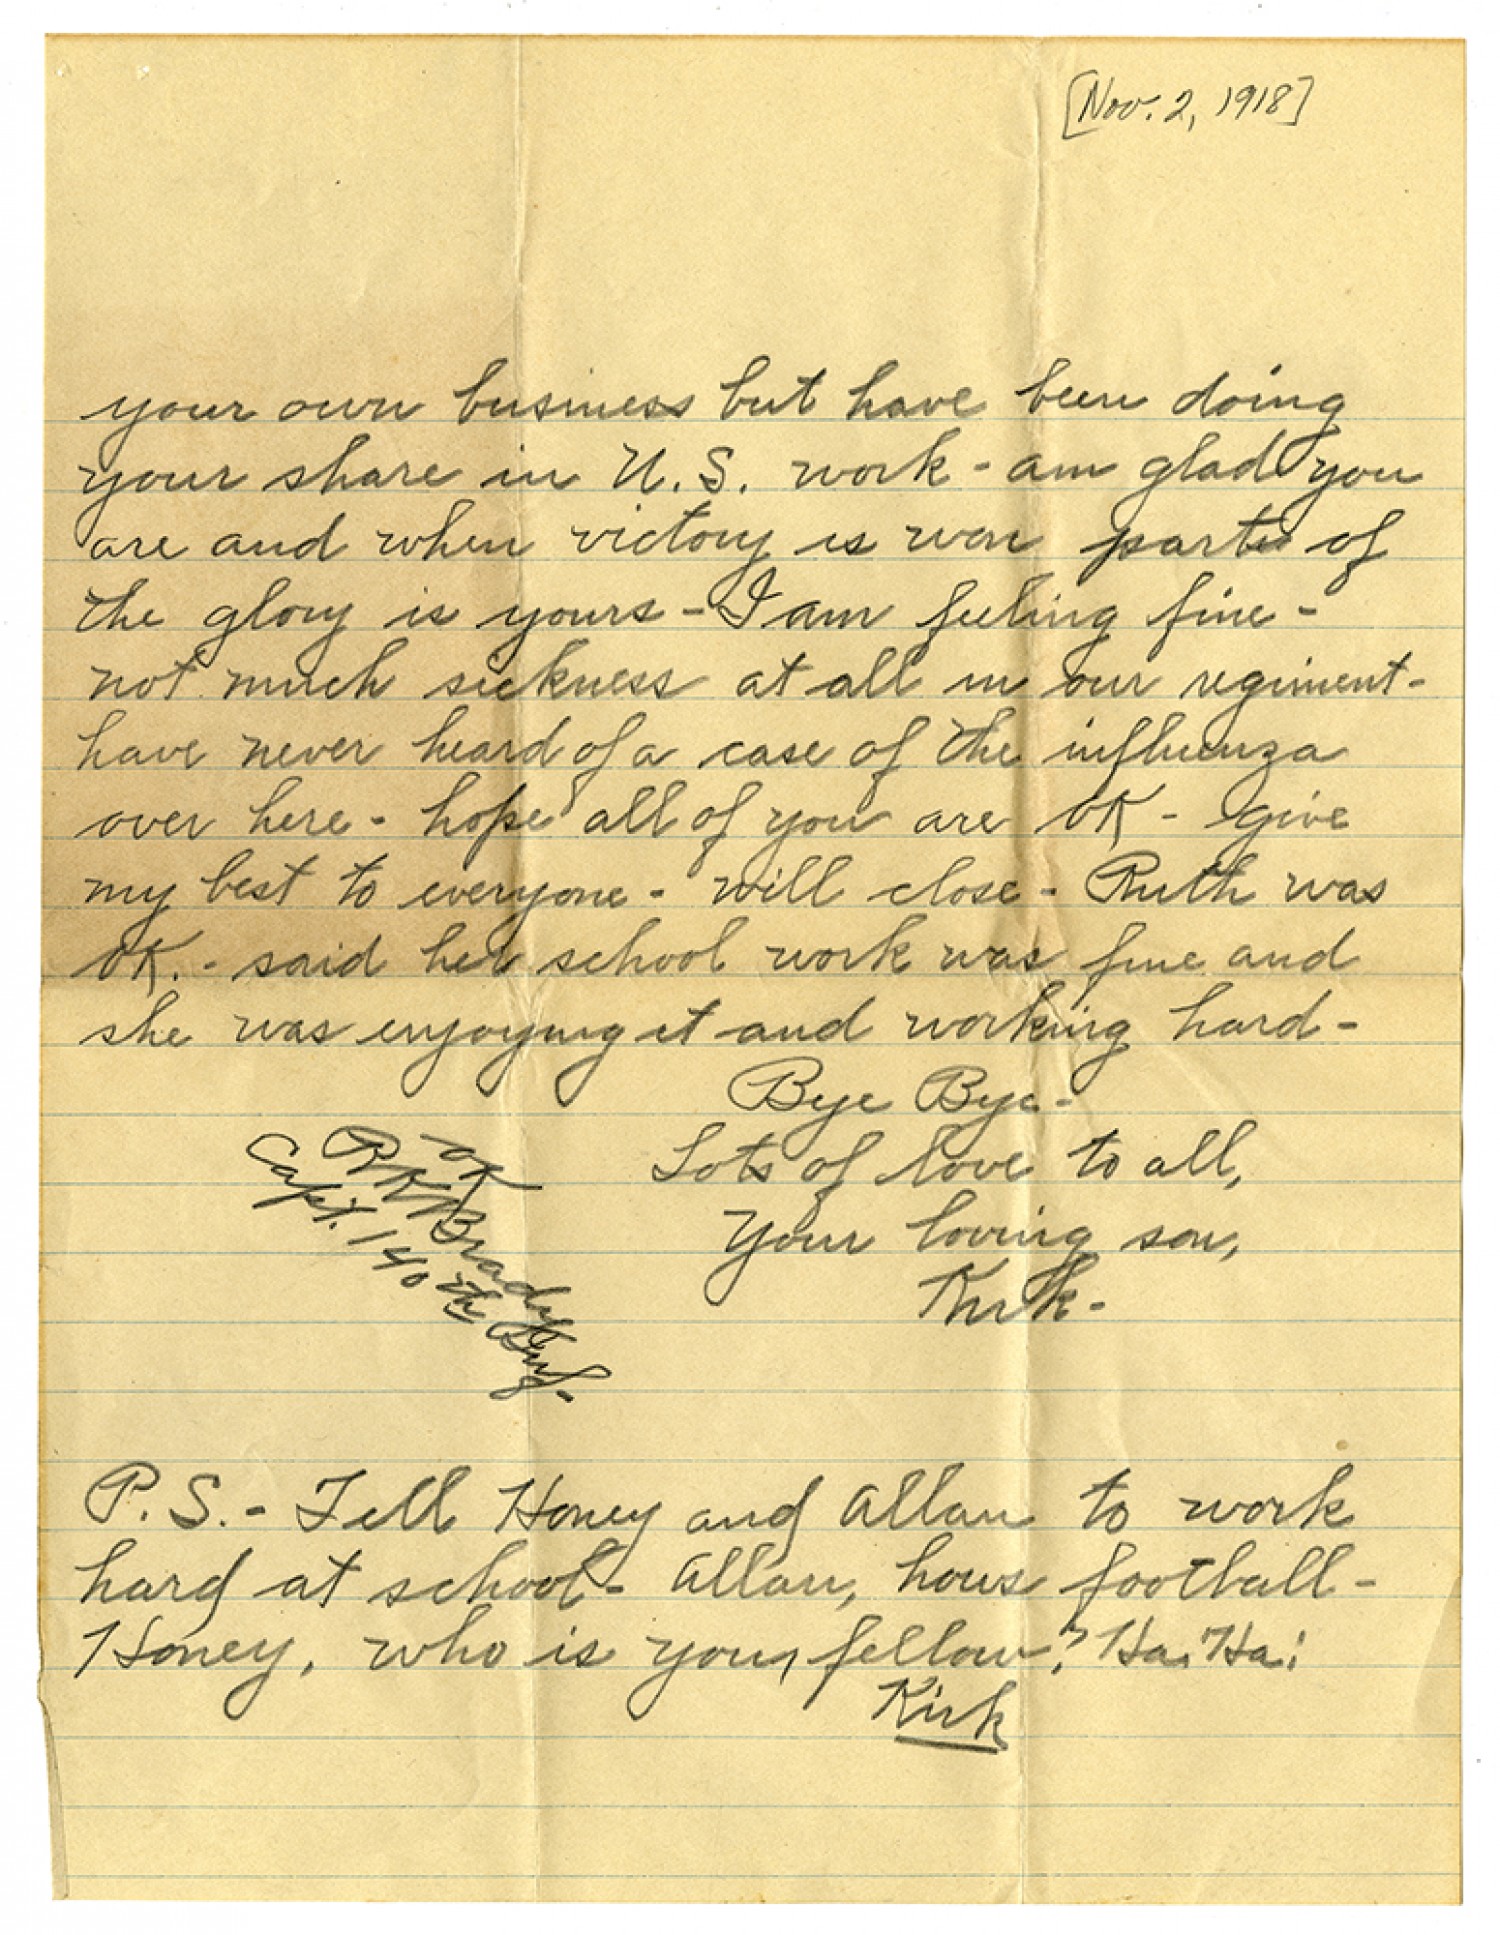 [Nov. 2, 1918]
your own business but have been doing
your share in U.S. work - am glad you
are and when victory is won parts of
the glory is yours - I am feeling fine -
not much sickness at all in our regiment -
have never heard of a case of the influenza
over here - hope all of you are OK - give
my best to everyone - will close - Ruth was
OK. - said her school work was fine and
she was enjoying it and working hard -
Bye Bye -
Lots of love to all,
Your loving son,
Kirk -
OK
R K Brady
Capt. 140th Inf -
P.S. - Tell Honey and Allan to work
hard at school - Allan, hows football -
Honey, who is your fellow? Ha! Ha!
Kirk